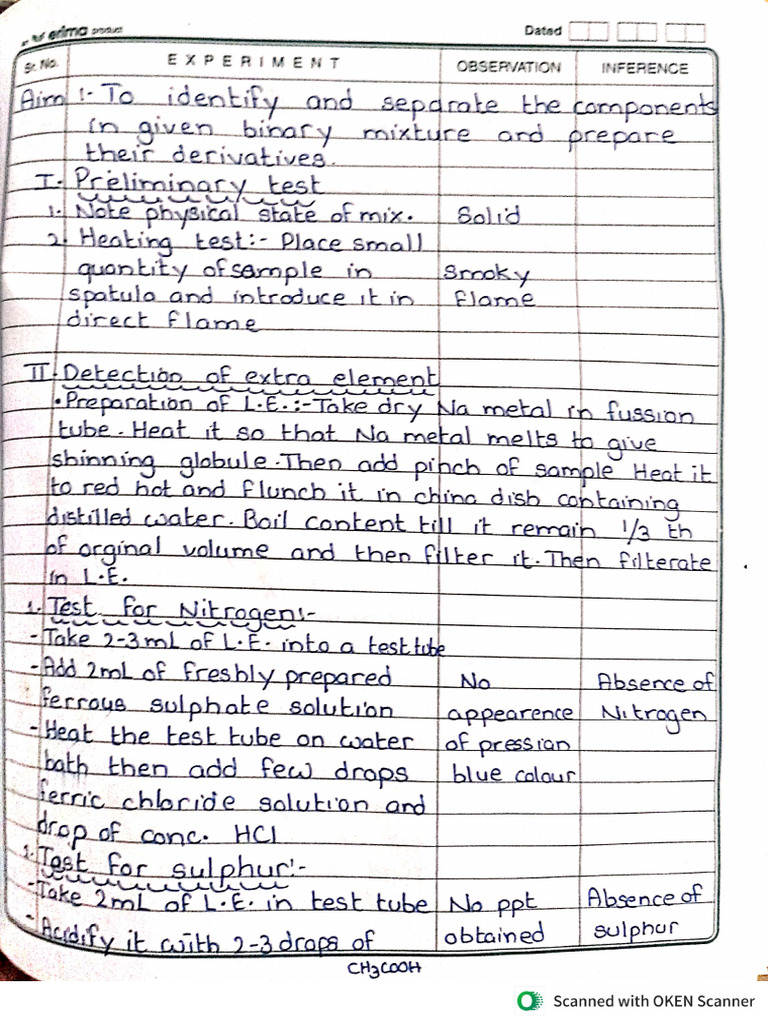 erima product
Dated
Sr. No. EXPERIMENT OBSERVATION INFERENCE
Aim :- To identify and separate the components
in given binary mixture and prepare
their derivatives.
I. Preliminary test
1. Note physical state of mix. Solid
2. Heating test:- Place small
quantity of sample in smoky
spatula and introduce it in flame
direct flame
II Detection of extra element
• Preparation of L.E.:- Take dry Na metal in fussion
tube. Heat it so that Na metal melts to give
shinning globule. Then add pinch of sample Heat it
to red hot and flunch it in china dish containing
distilled water. Boil content till it remain 1/3 th
of orginal volume and then filter it. Then filterate
in L.E.
1. Test for Nitrogen:-
- Take 2-3mL of L.E. into a test tube
- Add 2mL of freshly prepared No Absence of
ferrous sulphate solution appearence Nitrogen
- Heat the test tube on water of pression
bath then add few drops blue colour
ferric chloride solution and
drop of conc. HCl
Test for sulphur:-
- Take 2mL of L.E. in test tube No ppt Absence of
- Acidify it with 2-3 drops of obtained sulphur
CH3COOH
Scanned with OKEN Scanner